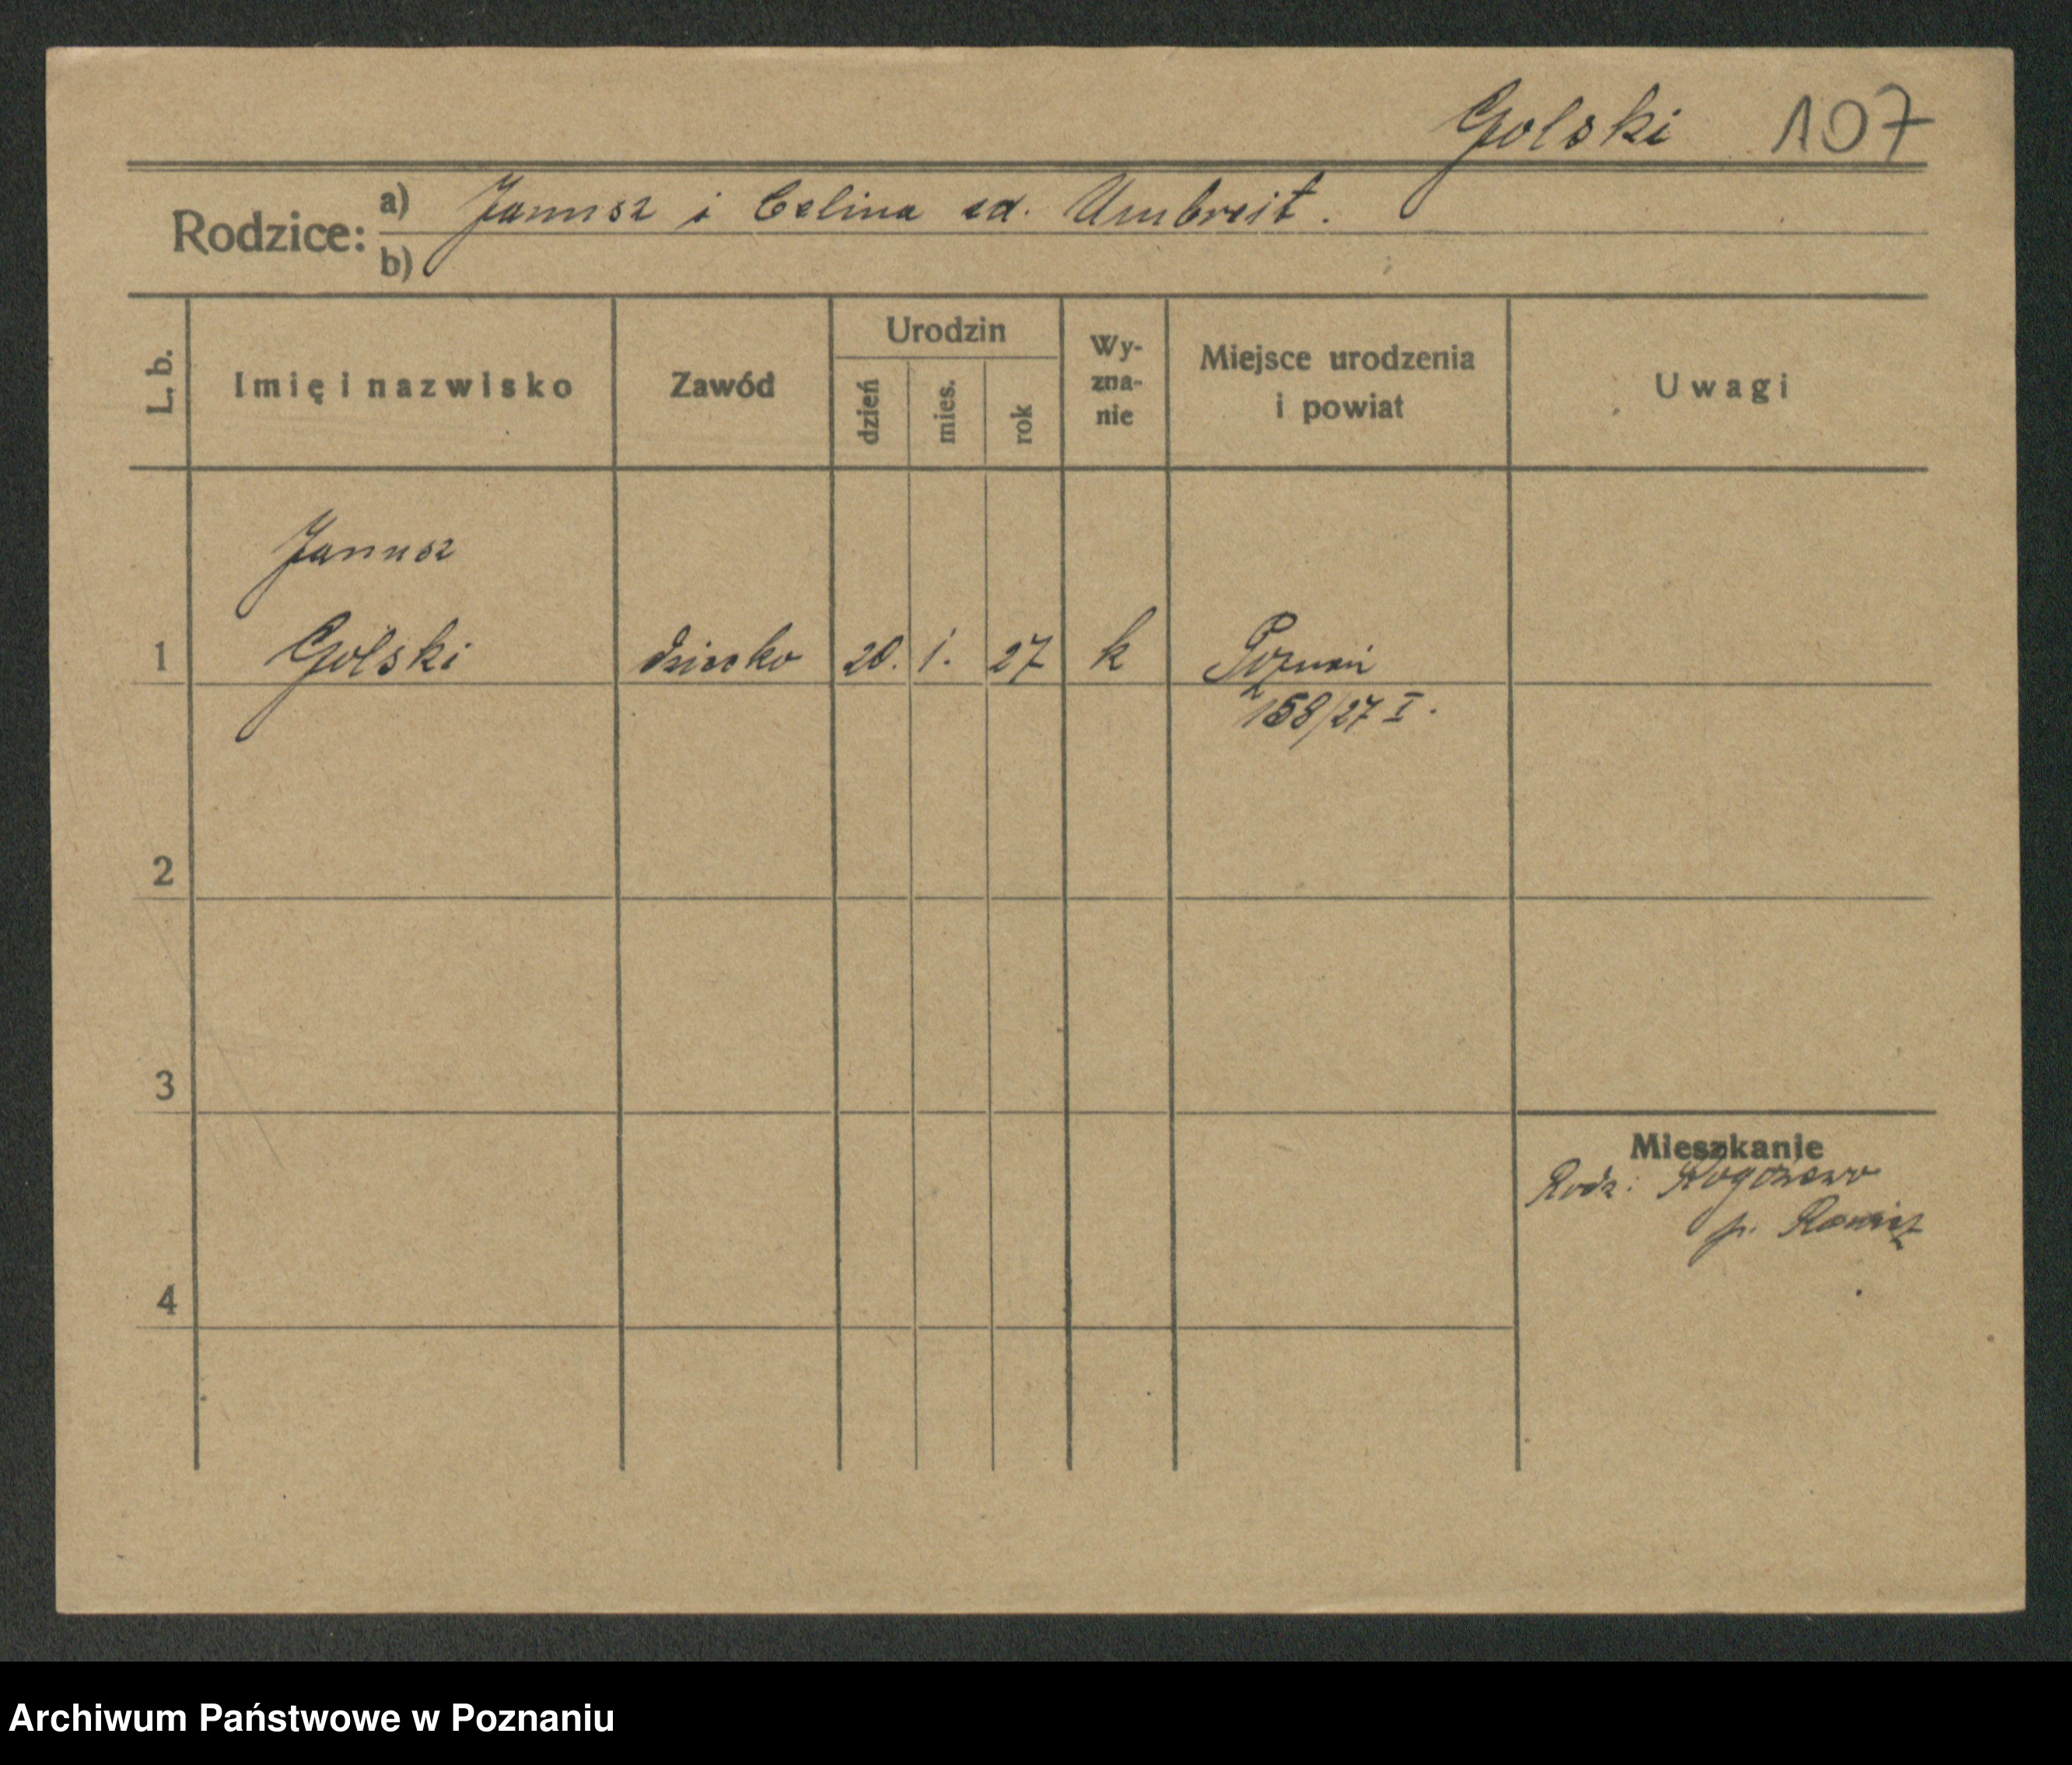 Golski 107
Rodzice: a) Janusz i Celina zd. Umbreit.
b)
L. b. Imię i nazwisko Zawód Urodzin dzień mies. rok Wy-zna-nie Miejsce urodzenia i powiat Uwagi
Janusz
1 Golski dziecko 20. 1. 27 k Poznań
158/27 I.
2
3
Mieszkanie
Rodz: Rogożewo
p. Rawicz
4
Archiwum Państwowe w Poznaniu